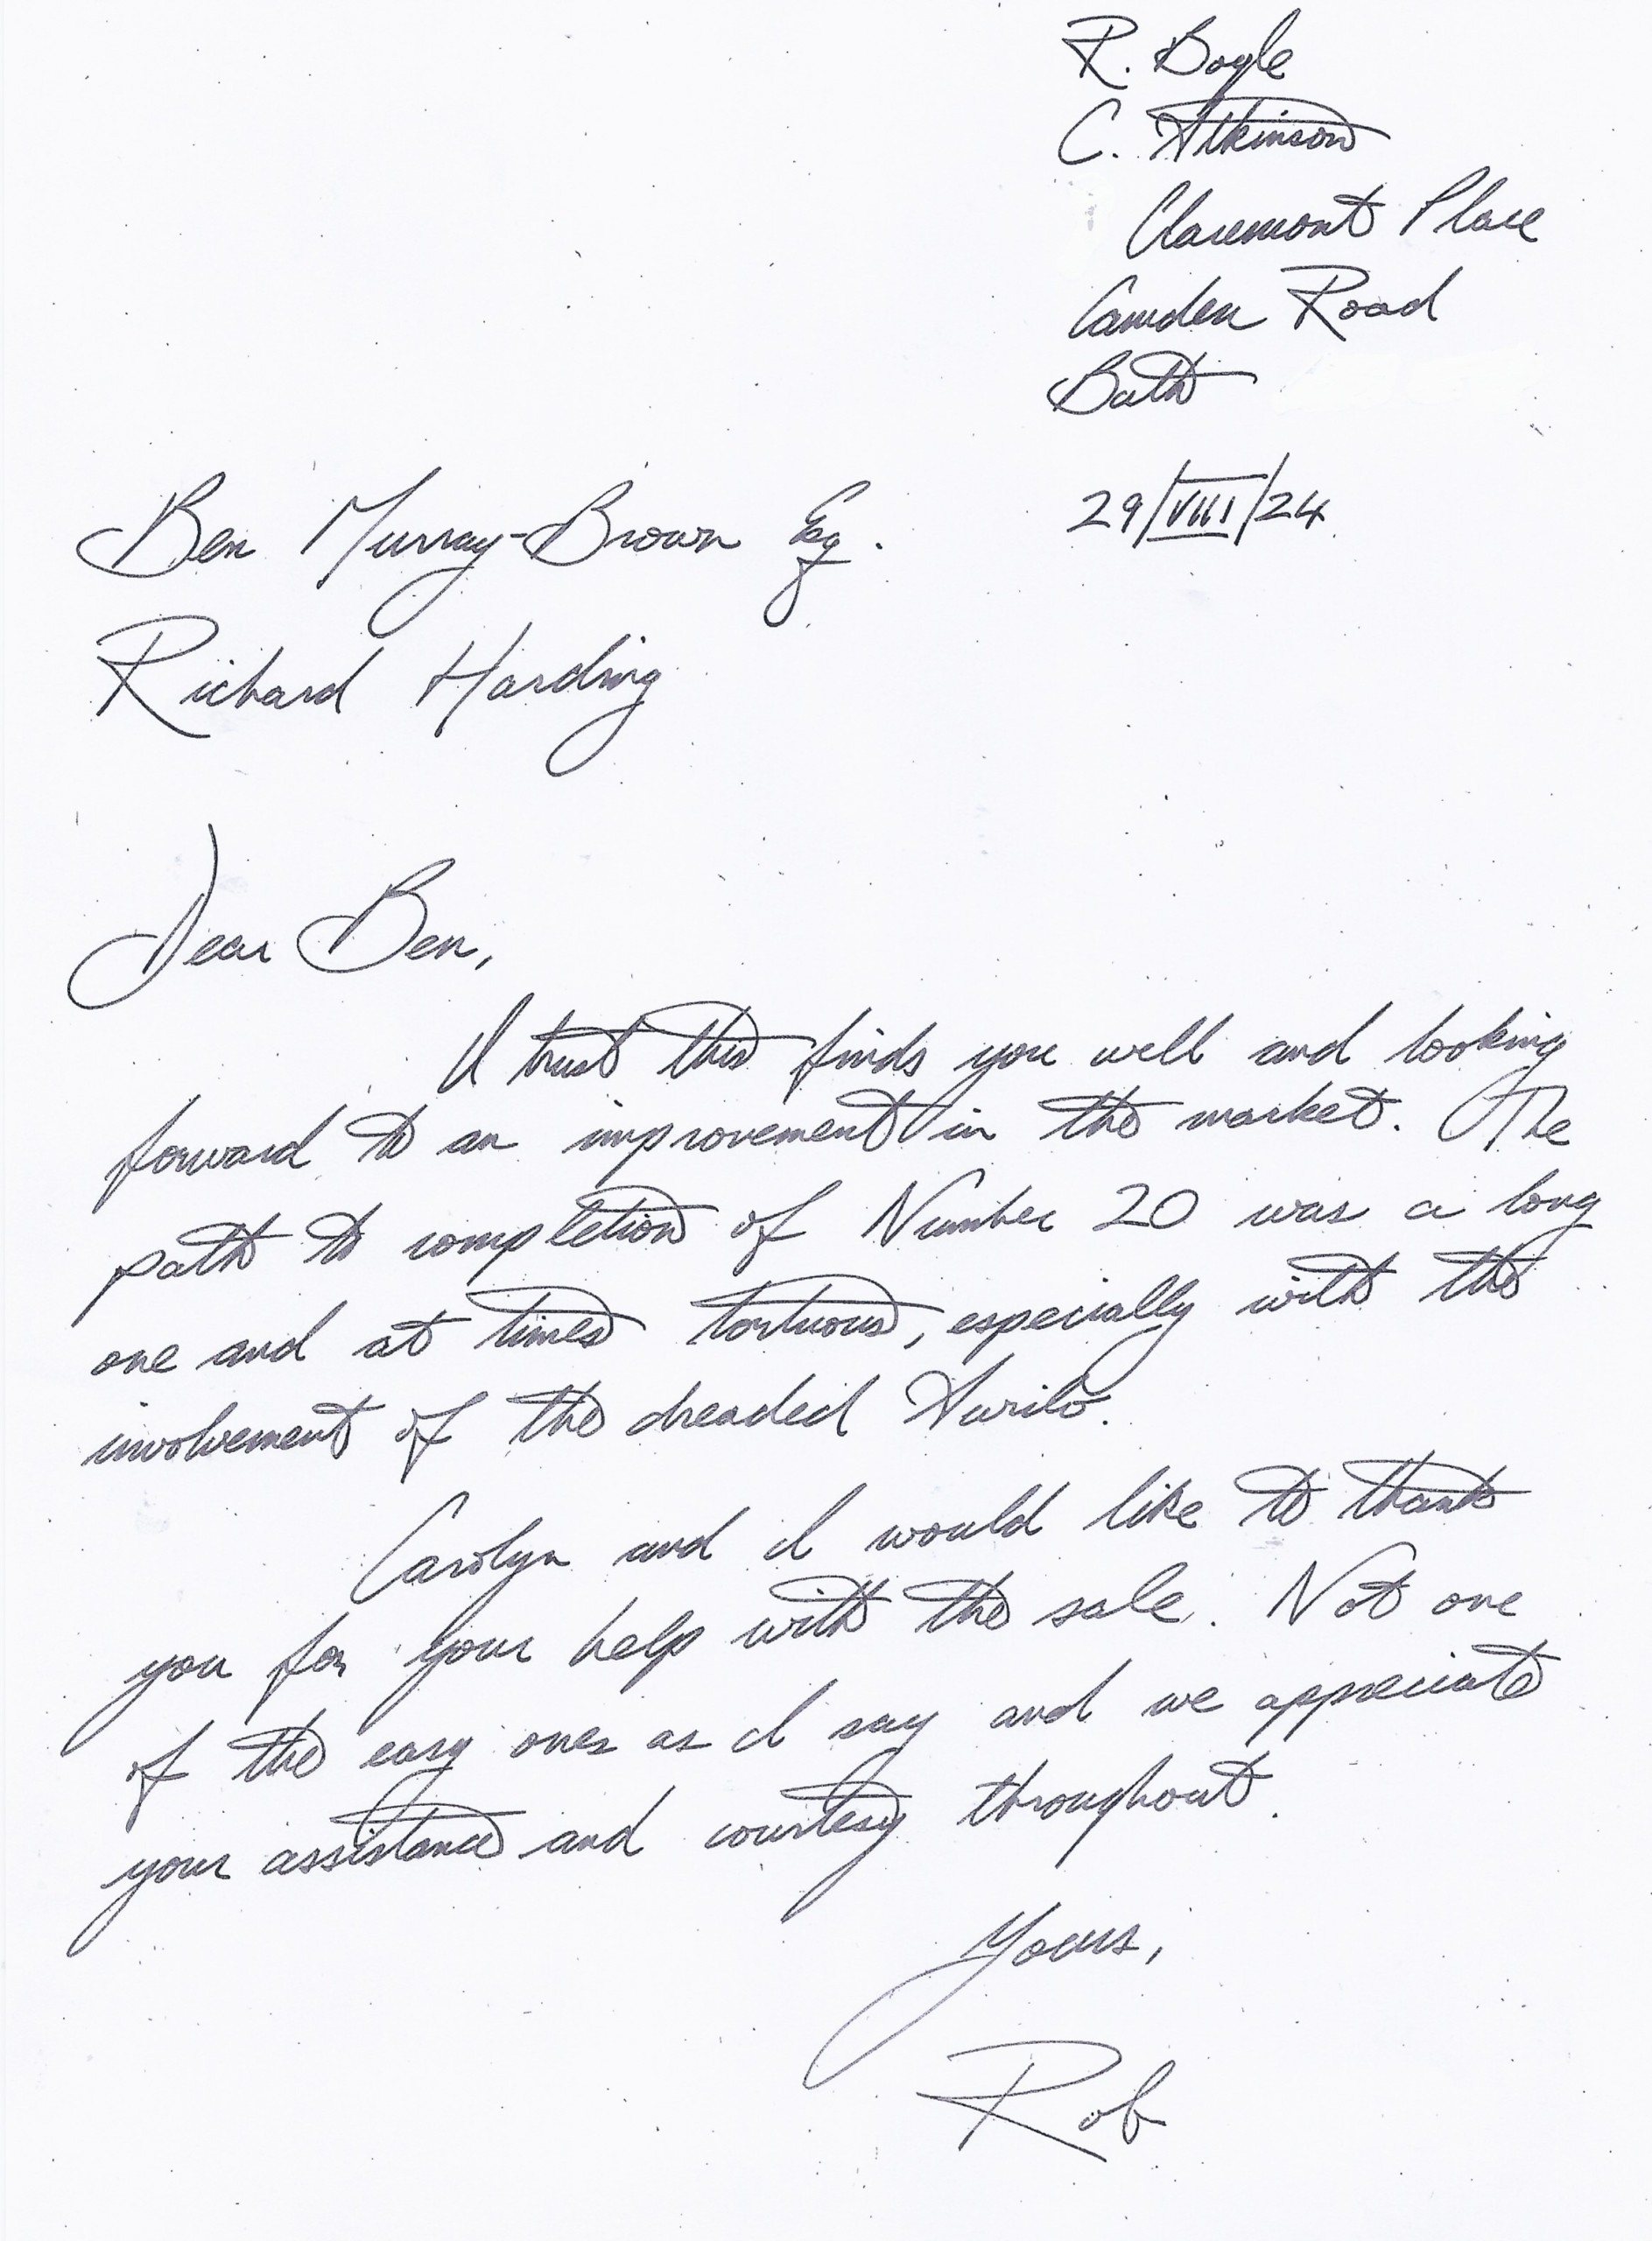 R. Boyle
C. Atkinson
Claremont Place
Camden Road
Bath
29/VIII/24
Ben Murray-Brown Esq.
Richard Harding
Dear Ben,
I trust this finds you well and looking
forward to an improvement in the market. The
path to completion of Number 20 was a long
one and at times tortuous, especially with the
involvement of the dreaded
Carolyn and I would like to thank
you for your help with the sale. Not one
of the easy ones as I say and we appreciate
your assistance and courtesy throughout.
Yours,
Rob